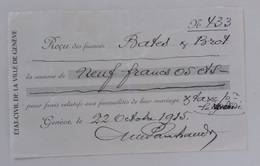 No 433
Reçu des fiancés Bates & Brot
la somme de Neuf francs 05 cts
pour frais relatifs aux formalités de leur mariage & taxe p.
Genève, le 22 Octobre 1915.
ETAT-CIVIL DE LA VILLE DE GENÈVE